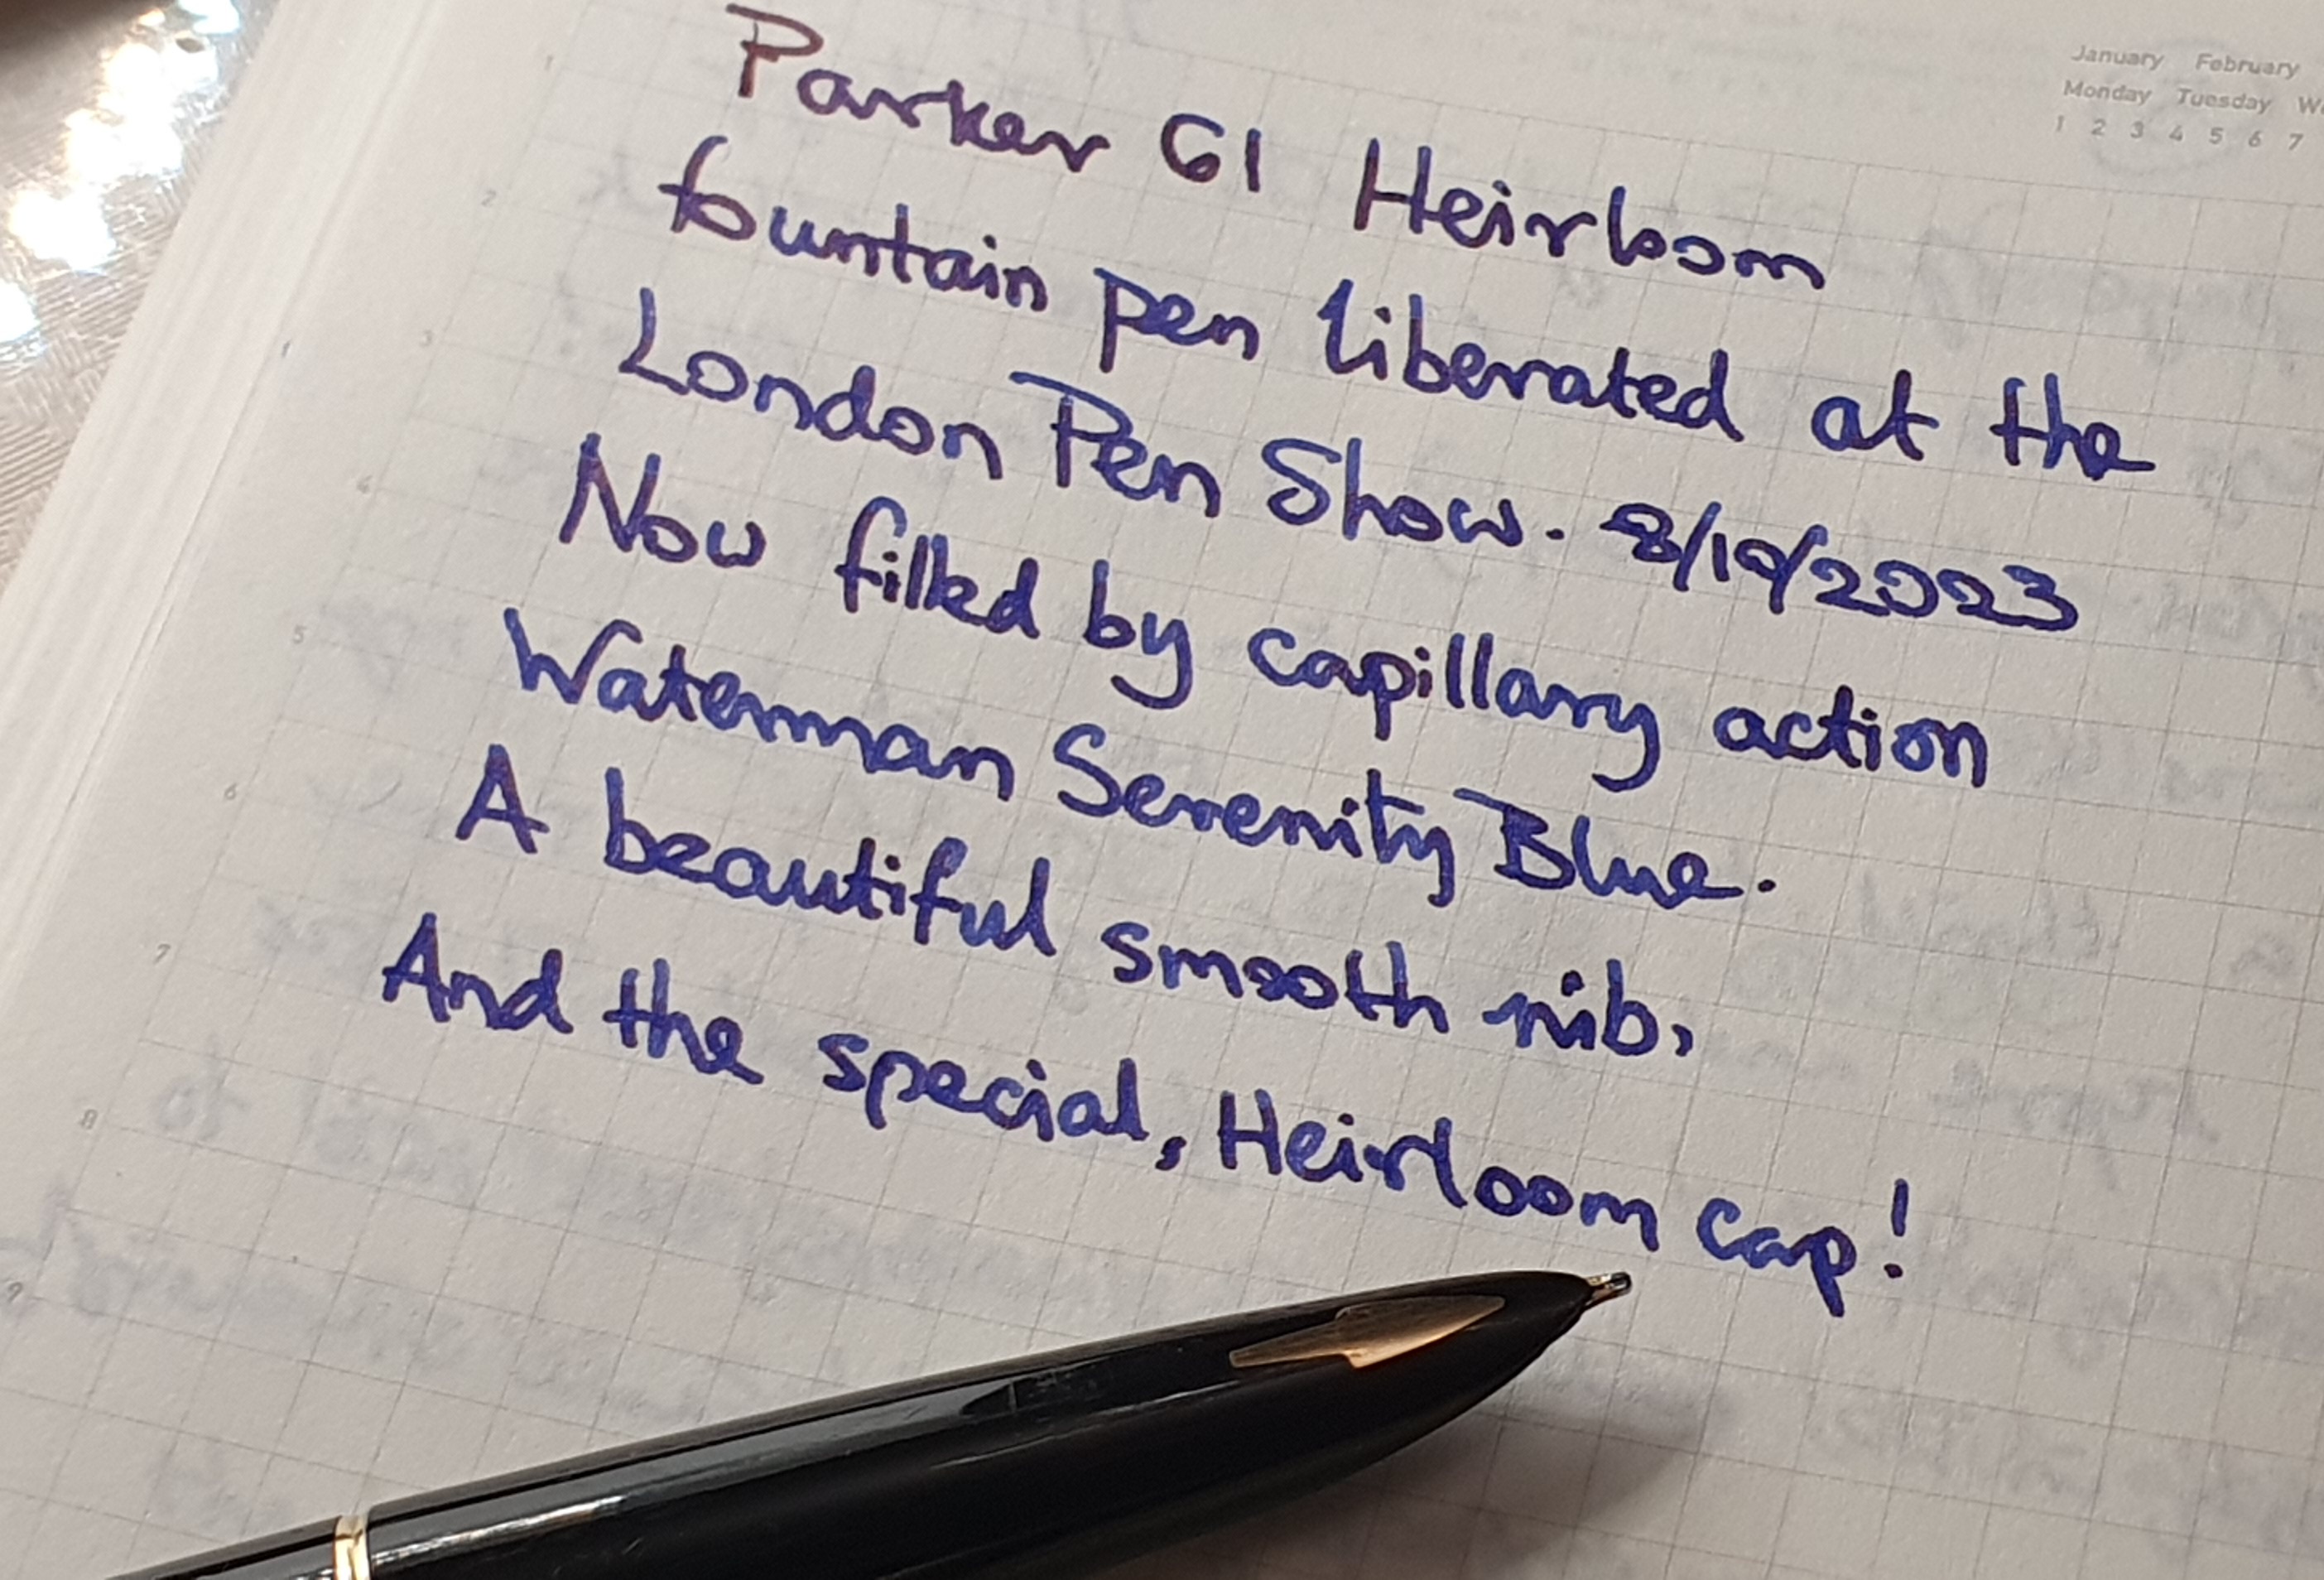 January February
Monday Tuesday
1 2 3 4 5 6 7
Parker 61 Heirloom
fountain pen liberated at the
London Pen Show. 8/10/2023
Now filled by capillary action
Waterman Serenity Blue.
A beautiful smooth nib,
And the special, Heirloom cap!
1
2
3
4
5
6
7
8
9